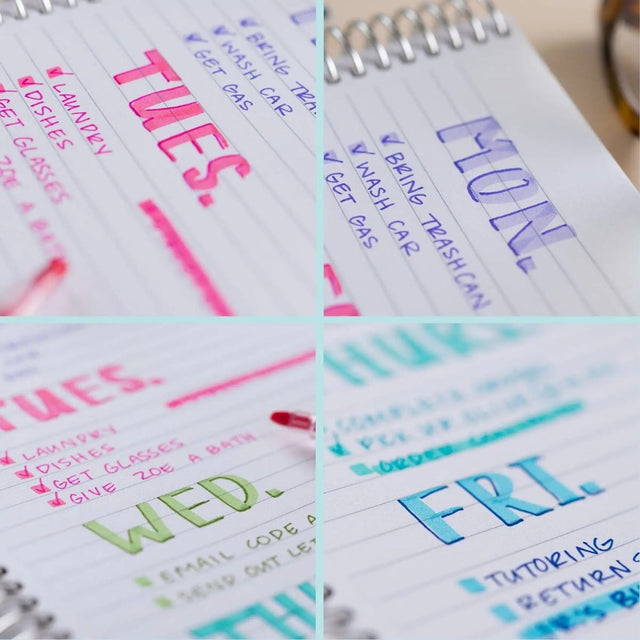 BRING TRA
WASH CAR
GET GAS
TUES.
LAUNDRY
DISHES
GET GLASSES
ZOE A BATH
MON.
BRING TRASHCAN
WASH CAR
GET GAS
TUES.
LAUNDRY
DISHES
GET GLASSES
GIVE ZOE A BATH
WED.
EMAIL CODE A
SEND OUT LET
TH
HUR
FRI.
TUTORING
RETURN